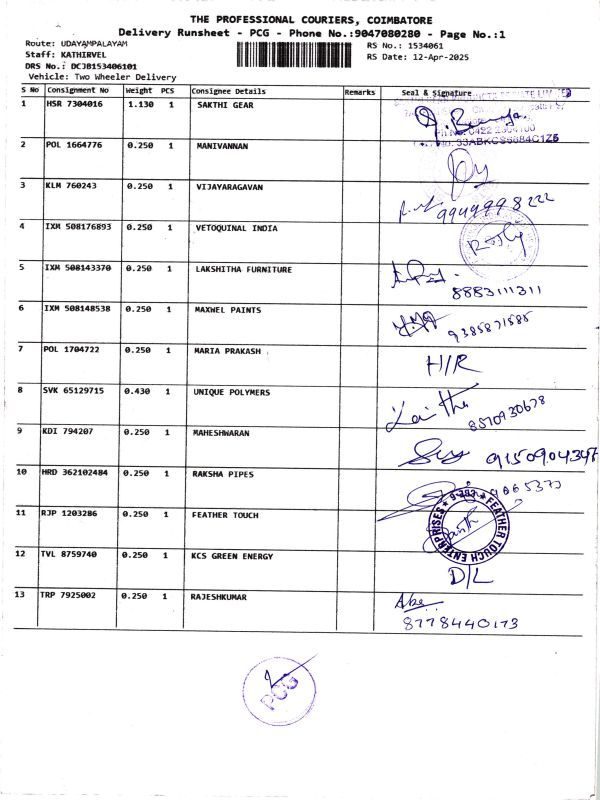 THE PROFESSIONAL COURIERS, COIMBATORE
Delivery Runsheet - PCG - Phone No.:9047080280 - Page No.:1
Route: UDAYAMPALAYAM RS No.: 1534061
Staff: KATHIRVEL RS Date: 12-Apr-2025
DRS No.: DCJB153406101
Vehicle: Two Wheeler Delivery
S No Consignment No Weight PCS Consignee Details Remarks Seal & Signature
1 HSR 7304016 1.130 1 SAKTHI GEAR
0422 2364100
33ABKCS5684C1Z5
2 POL 1664776 0.250 1 MANIVANNAN
3 KLM 760243 0.250 1 VIJAYARAGAVAN
9949998222
4 IXM 508176893 0.250 1 VETOQUINAL INDIA
5 IXM 508143370 0.250 1 LAKSHITHA FURNITURE
8883111311
6 IXM 508148538 0.250 1 MAXWEL PAINTS
9385871585
7 POL 1704722 0.250 1 MARIA PRAKASH
H/R
8 SVK 65129715 0.430 1 UNIQUE POLYMERS
8570930678
9 KDI 794207 0.250 1 MAHESHWARAN
9150904347
10 HRD 362102484 0.250 1 RAKSHA PIPES
11 RJP 1203286 0.250 1 FEATHER TOUCH
FEATHER TOUCH ENTERPRISES
12 TVL 8759740 0.250 1 KCS GREEN ENERGY
D/L
13 TRP 7925002 0.250 1 RAJESHKUMAR
8778440173
PCG